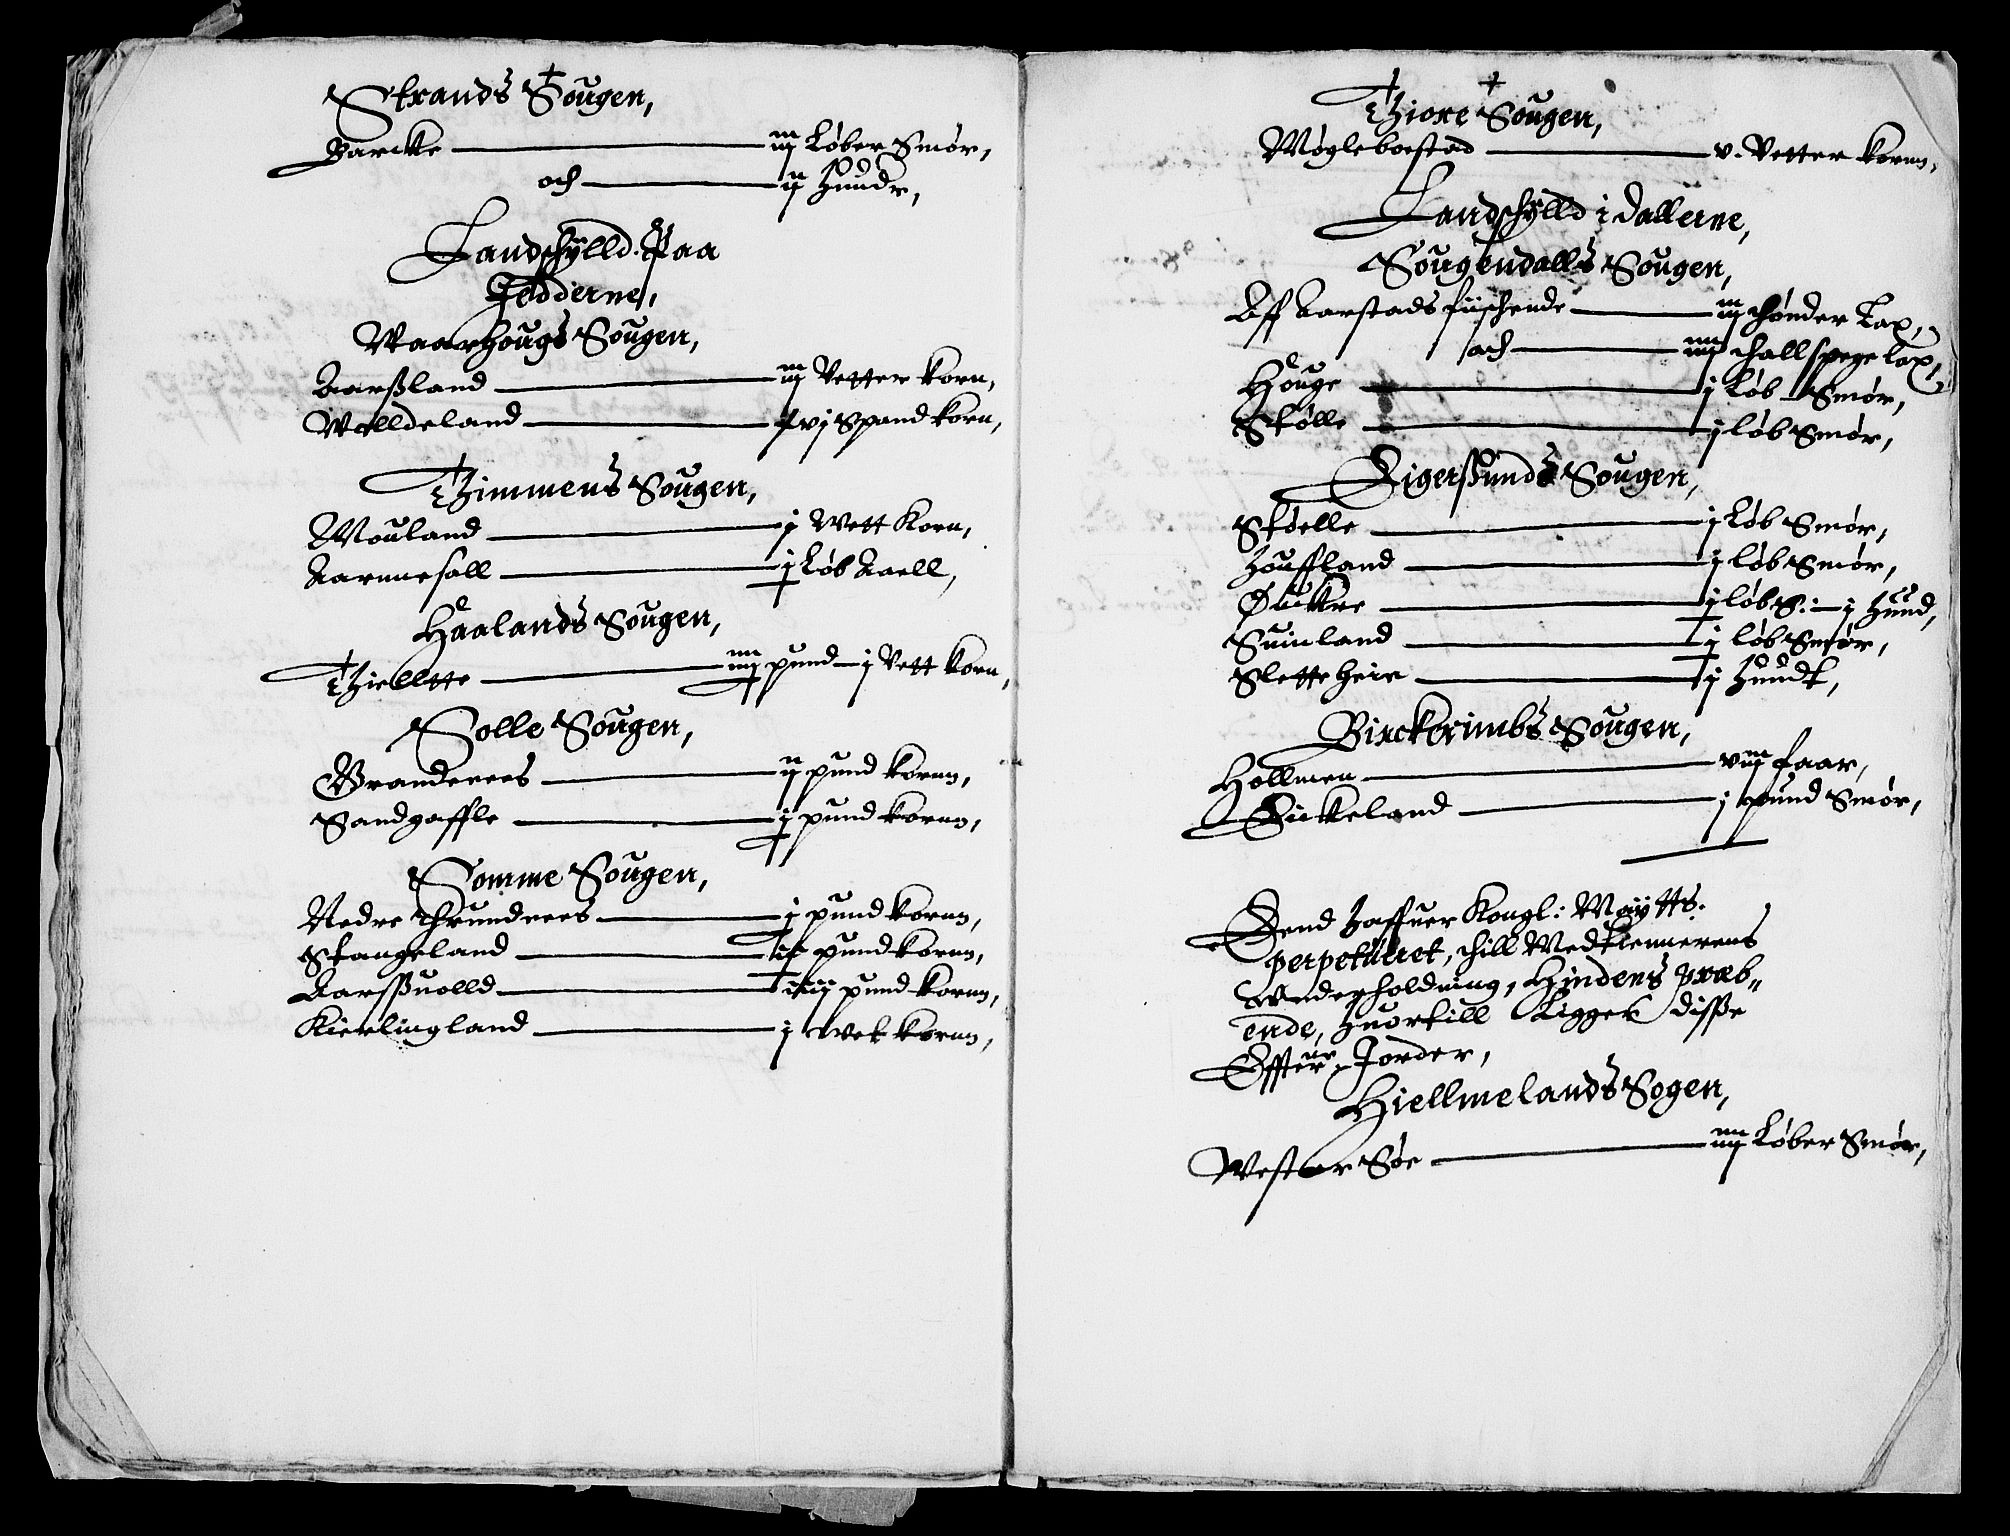 Strands Sougen,
Barcke — iij Løber Smör,
och — ij Hundr,
Landschylld Paa
Jedderne,
Waarhougs Sougen,
Aarßland — iij Vetter korn,
Welldeland — xvj Spand korn,
Thimmens Sougen,
Mouland — j Wett Korn,
Aarmesall — j Løb Aaell,
Haalands Sougen,
Thiellte — iiij pund — j Vett korn,
Solle Sougen,
Branderees — ij pund kornn,
Sandgaffle — j pund kornn,
Somme Sougen,
Nedre Thrundrees — j pund kornn,
Stangeland — ij pund kornn,
Aarsßuolld — pund kornn,
Kierlingland — j wet kornn,
Thiore Sougen,
Møgleboestad — v. Vetter kornn,
Landschylld i dallerne,
Sougendalls Sougen,
Aff Aarstads fiischende — iij thønder Lax,
och — iiij thallspege lax,
Houge — j Løb Smör,
Skølle — j løb Smör,
Eigersßunds Sougen,
Skøelle — j Løb Smör,
Houffland — j løb Smör,
Øuckre — j løb S: — j Hund,
Suinland — j løb Smör,
Sletteheie — j Hundt,
Birckrimbs Sougen,
Hollmen — viij faar,
Eickeland — j pund Smör,
Dend haffuer Kongl: Maÿtts.
perpetuert, thill Medtiennerens
wnderholdning, Hindens præb„
ende, huortill Ligger disße
Effterne Jorder,
Hiellmelands Sogen,
Wester Søe — iiij Løber Smör,